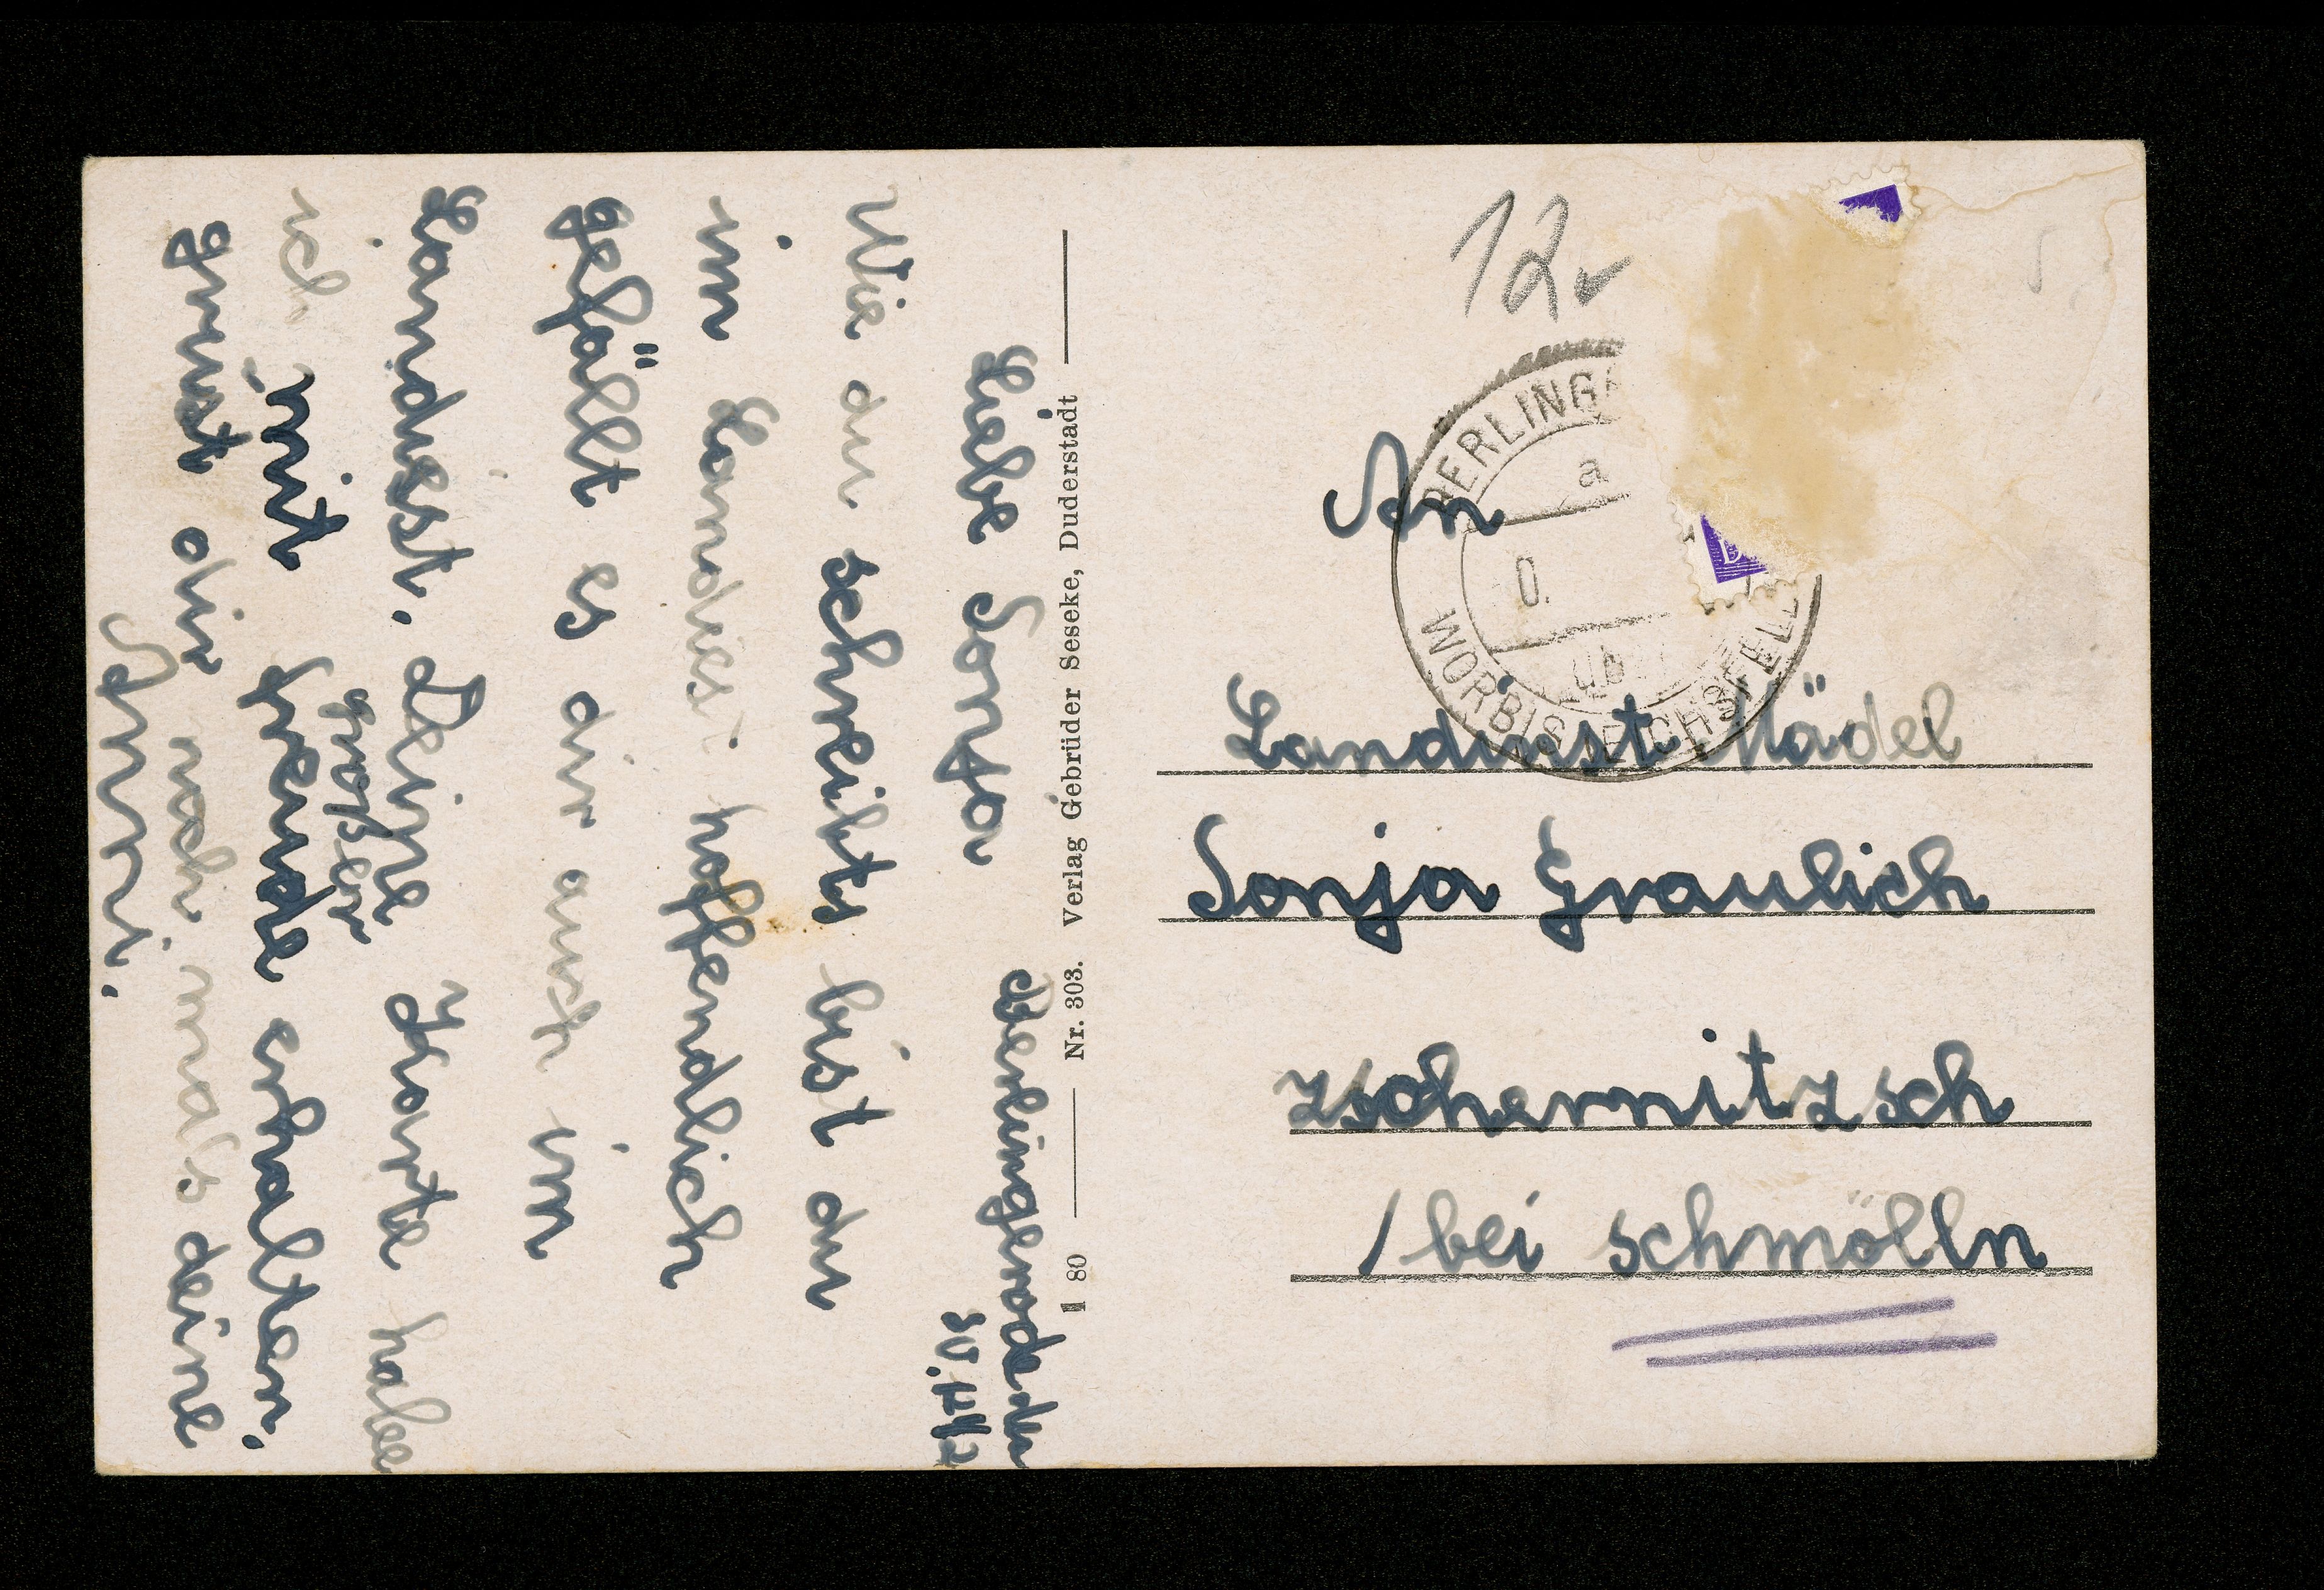 Berlingerode den
Liebe Sonja
Wie du schreibts bist du
im Landiest hoffendlich
gefällt es dir auch im
Landiest. Deine Karte habe
ich mit großer freude erhalten.
grust dir noch mals deine
Anni.
1 80 Nr. 303. Verlag Gebrüder Seseke, Duderstadt
12
BERLINGE
a
0.
üb
WORBIS EICHSFELD
An
Landinst Mädel
Sonja Graulich
zschernitzsch
/ bei schmölln